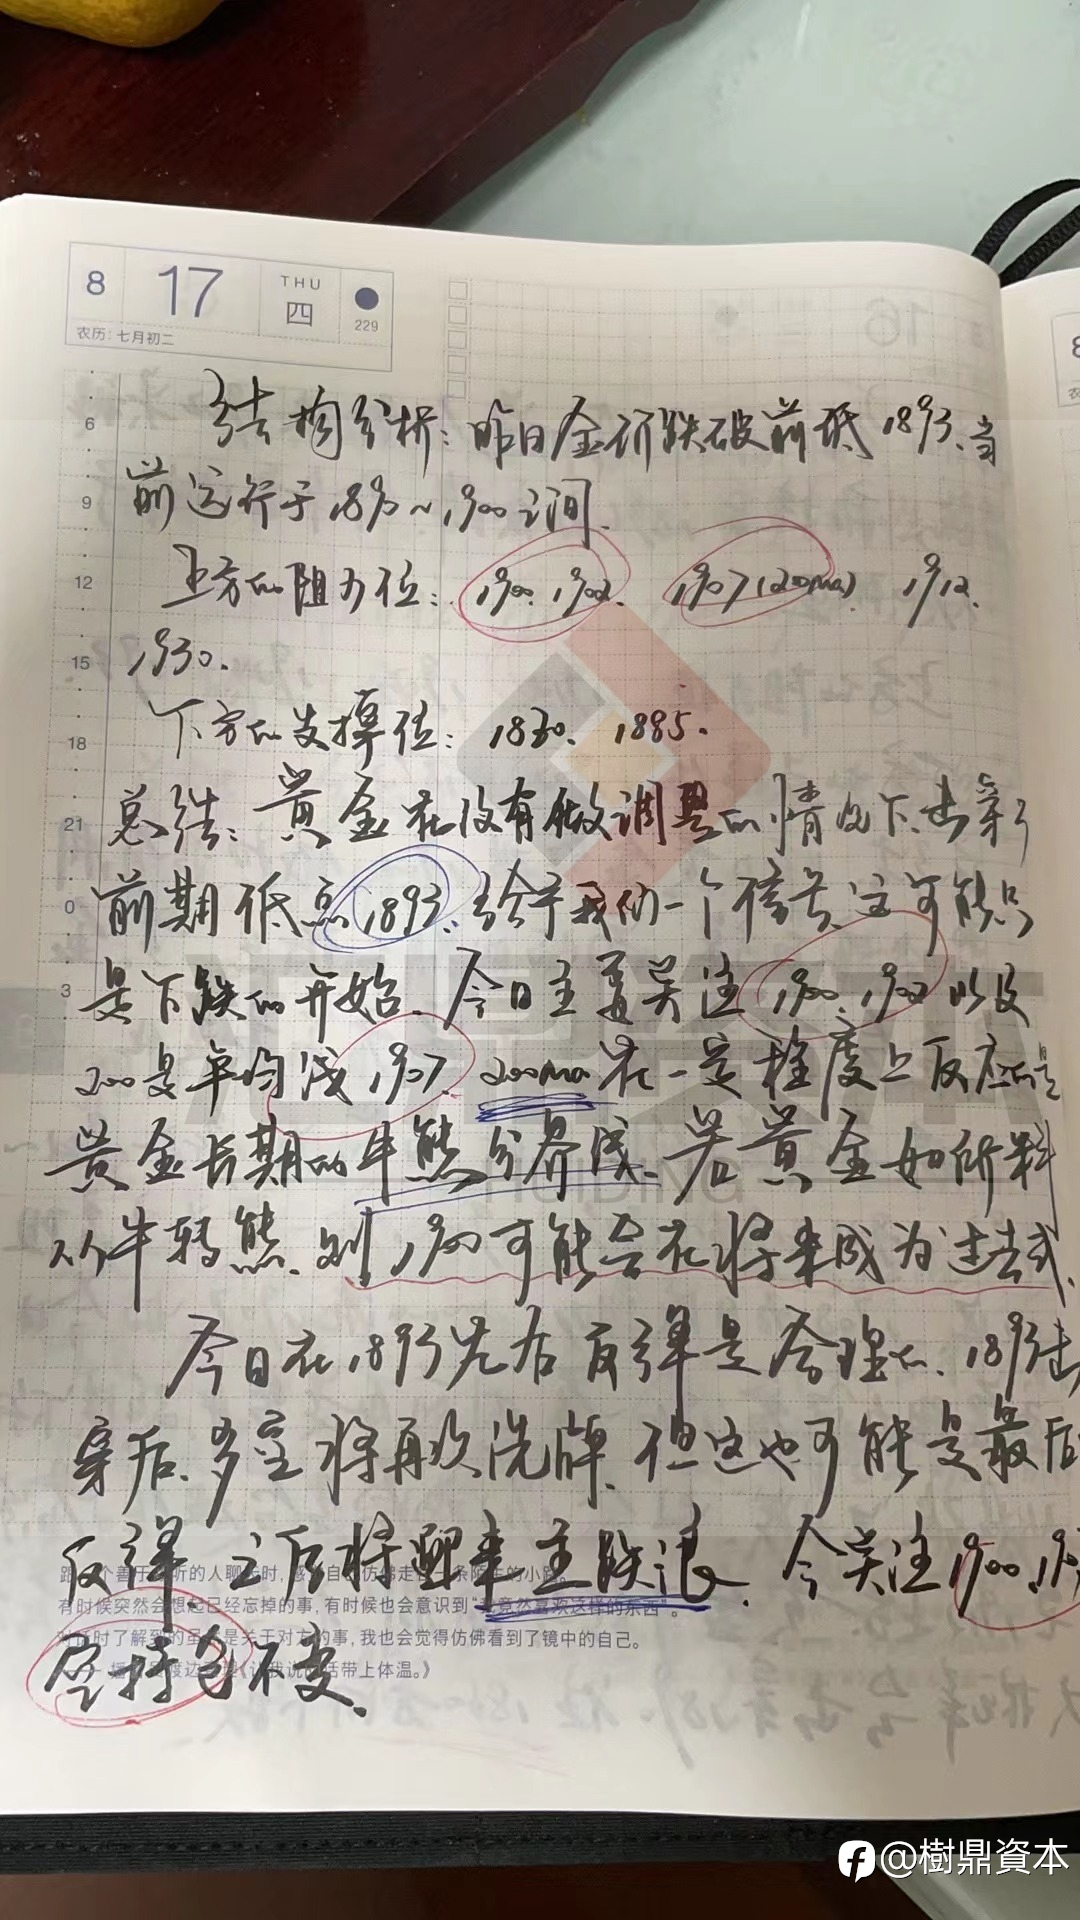 8 17 THU 四 229
农历:七月初二
16
6
9
12
15
18
21
0
3
结构分析:昨日金价跌破前低1893、当
前运行于1890~1900之间.
上方的阻力位:1900、1902、1907(200ma)、1912、
1930.
下方的支撑位:1880、1885.
总结:黄金在没有做调整的情况下、击穿了
前期低点1893、给予我们一个信号、这可能只
是下跌的开始、今日主要关注1900、1902以及
200是平均线1907、200ma在一定程度上反应的是
黄金长期的牛熊分界线、若黄金如所料
从牛转熊、则1900可能会在将来成为过去式、
今日在1893先后反弹是合理的、1893击
穿后、多空将再次洗牌、但这也可能是最后
反弹、之后将迎来主跌浪、今关注1900、
空持仓不变、
有时候突然会想起已经忘掉的事,有时候也会意识到“我竟然喜欢这样的东西”。
HUIDING
@樹鼎資本